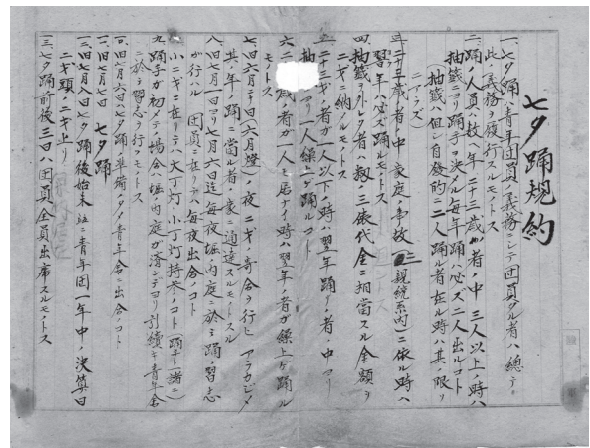 七夕踊規約
一、七夕踊ハ青年団員ノ義務ニシテ団員タル者ハ總テ
此ノ義務ヲ復行スルモノトス
二、踊ノ人員ハ数ヘ年二十三歳ノ者ノ中三人以上ノ時ハ
抽籤ニヨリ踊手ヲ決メル毎年踊ハ必ズ二人出ルコト
(抽籤ハ但シ自發的ニ二人踊ル者在ル時ハ其ノ限リ
ニアラズ)
三、二十三歳ノ者ノ中家庭ノ事故(親統系内)ニ依ル時ハ
翌年ハ必ズ踊ルモノトス
四、抽籤ヲハズレタ者ハ籾三俵代金ニ相當スル金額ヲ
ニギニ納ルモノトス
五、二十三歳ノ者ガ一人以下ノ時ハ翌年ノ踊リノ者ノ中ヨリ
抽 リ一人繰上ゲ踊ルコト
六、二 歳ノ者ガ一人モ居ナイ時ハ翌年ノ者ガ繰上ゲ踊ル
モノトス
七、旧六月三日(六月燈)ノ夜ニギノ寄合ヲ行ヒアラカジメ
其ノ年ノ踊ニ當ル者ノ家ニ通達スルモノトスル
八、旧七月一日ヨリ七月六日迄毎夜堀内庭ニ於テ踊ノ習ヲ
行ハル 団員ニ在リテハ毎夜出会ノコト
小ニギニ在リテハ大丁灯小丁灯持参ノコト(踊手ノ諸ニ)
九、踊子ガ初メテノ場合ハ堀ノ内庭ガ済ンデヨリ引續キ青年舎
ニ於テ習ヲ行フモノトス
一〇、旧七月六日ハ七夕踊準備ノタメ青年舎ニ出合ノコト
一一、旧七月七日 七夕踊
一二、旧七月八日七夕踊後始末並ニ青年団一年中ノ決算日
ニギ頭ノニギ止リ
一三、七夕踊前後三日ハ団員全員出席スルモノトス